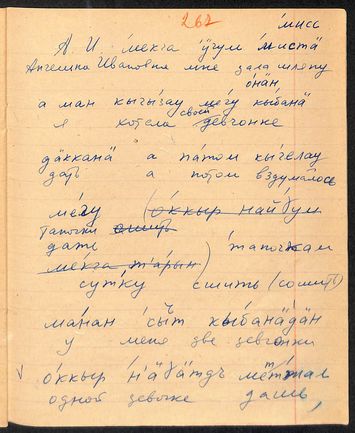 262
мисс
А. И. ме́кга ӱгум мыстӓ
Ангелина Ивановна мне дала шляпу
о́нӓн
а ман кыгы́зау ме́гу кы́банӓ
свой
я хотела девчонке
дӓкканӓ а па́том кы́гелау
дать а потом вздумалось
ме́гу (о́ккыр най ӱм
тапочки сшить
дать ) тапочкам
ме́кга, т'а́рын
сутку сшить (сошить)
ма́нан сы́т кы́банӓдӓн
у меня две девчонки
о́ккыр н'ӓ́ӱӓтдъ ме́ттал
одной девочке дашь,